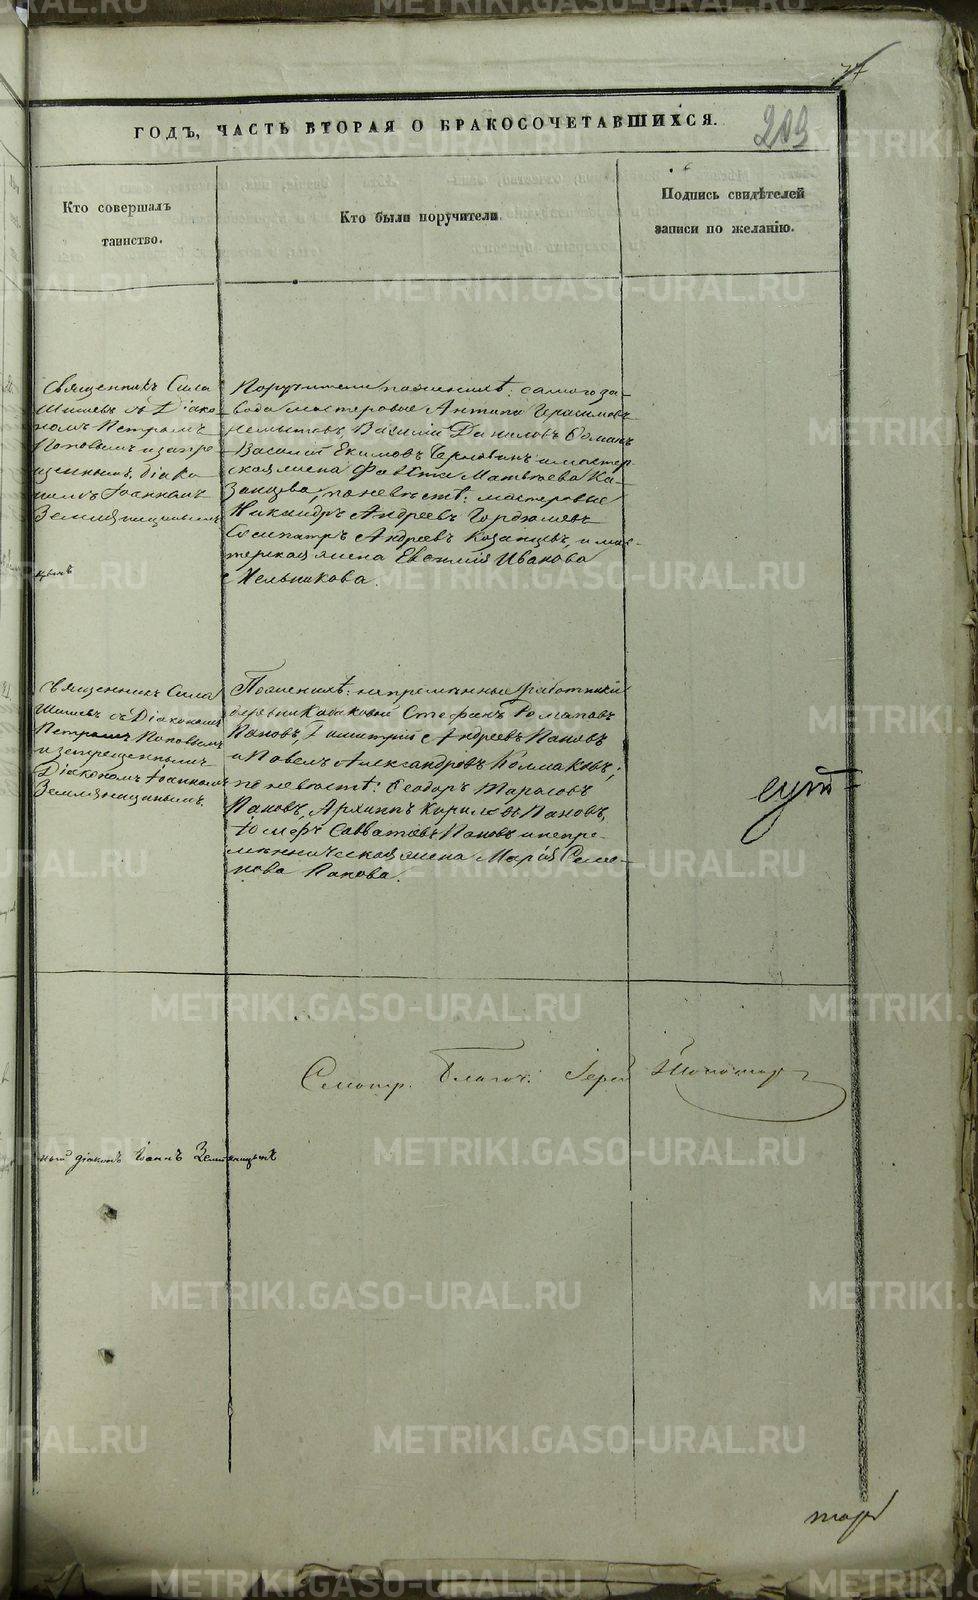 77
ГОДЪ, ЧАСТЬ ВТОРАЯ О БРАКОСОЧЕТАВШИХСЯ.
209
Кто совершалъ
таинство.
Кто были поручители
Подпись свидѣтелей
записи по желанію.
Священникъ Сила
съ Діако-
номъ Петромъ
Поповымъ и запре-
щеннымъ діако-
номъ Іоанномъ
Земляницынымъ
Поручители по женихѣ: самого за-
вода мастеровые Антипа Герасимовъ
Василій Даниловъ
Василій Екимовъ и мастер-
ская жена Матвѣева Ка-
занцева, по невѣстѣ: мастеровые
Никандръ Андреевъ
Сосипатръ Андреевъ Козанцевъ, и мас-
терская жена Евгенія Иванова
Мельникова.
Священникъ Сила
съ Діакономъ
Петромъ Поповымъ
и запрещеннымъ
Діакономъ Іоанномъ
Земляницынымъ.
По женихѣ: непремѣнные работники
деревни Стефанъ
Пановъ, Димитрій Андреевъ Пановъ
и Павелъ Александровъ Колмаковъ;
по невѣстѣ: Ѳеодоръ Тарасовъ
Пановъ, Архиппъ Кириловъ Пановъ,
Савватіевъ Пановъ и непре-
мѣнническая жена Марія Семе-
нова Панова.
Смотр. Благоч. Іерей
ный діаконъ Іоаннъ Земляницынъ
METRIKI.GASO-URAL.RU